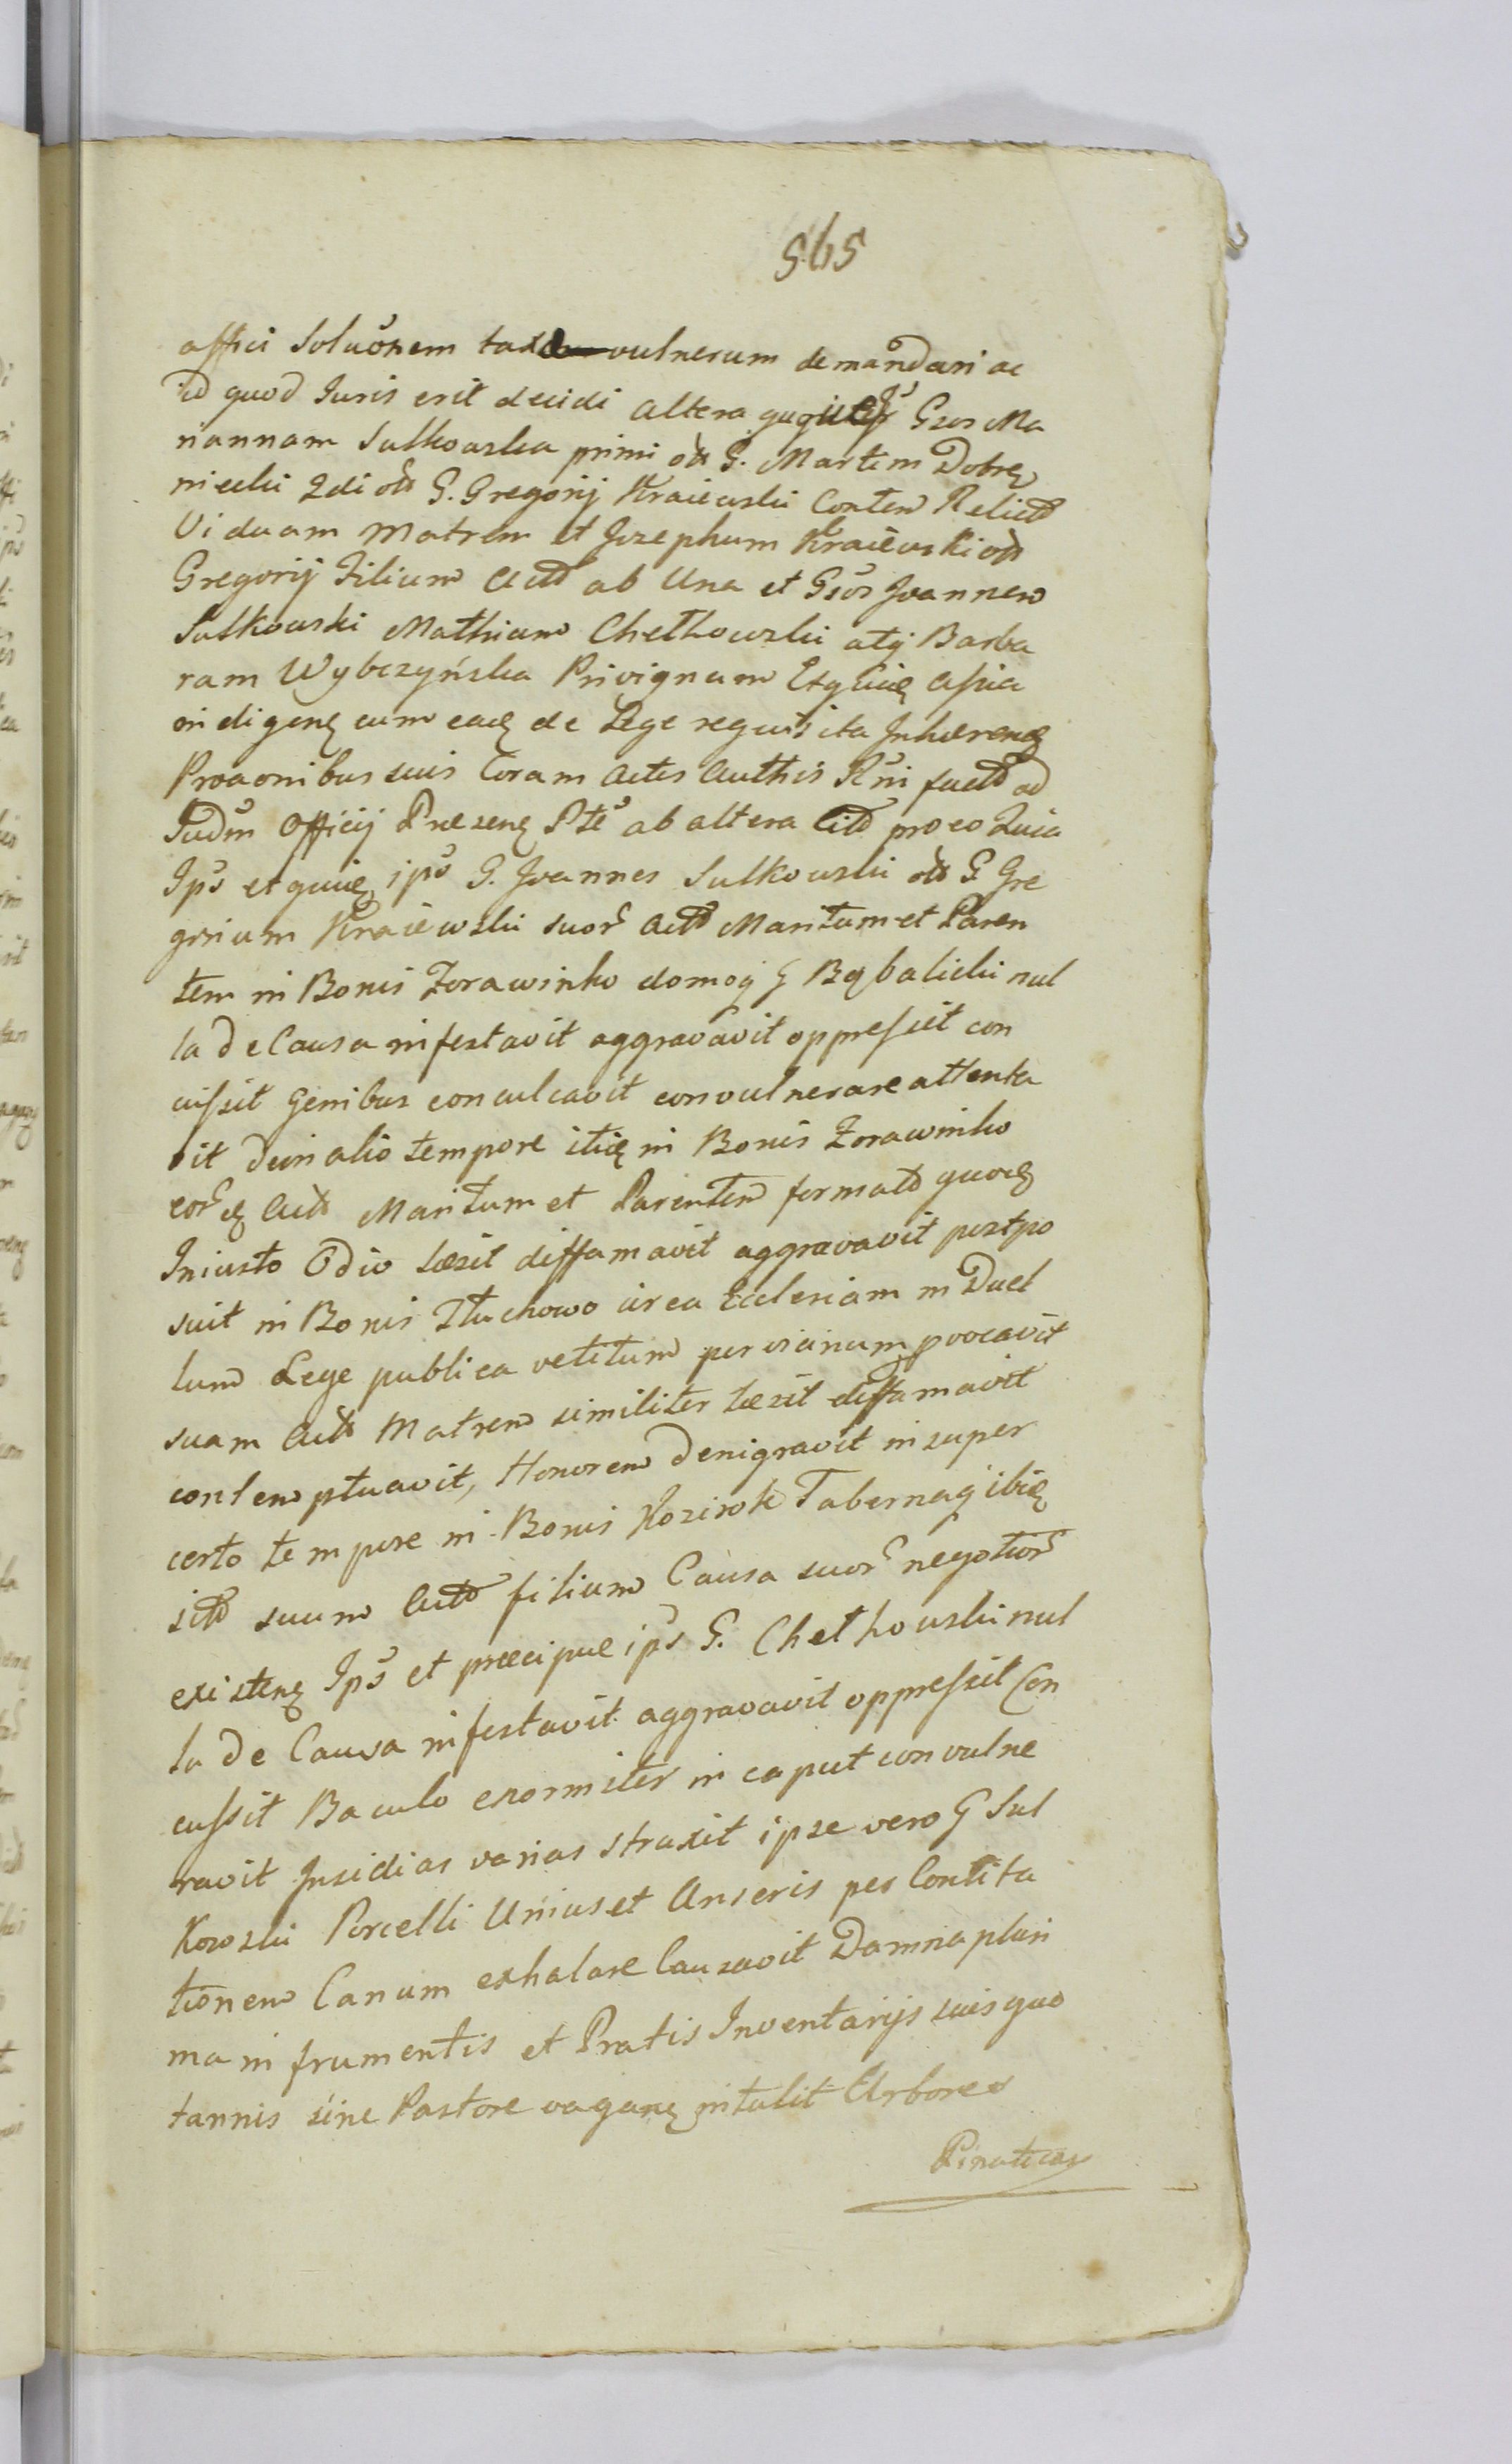 565
affici Soluōnem taxæ vulnerum demandari ac
id quod Iuris erit decidi altera Gsos Ma
riannam Sulkowska primi G. Martem Dobrę
niecki 2di G. Gregorij Kraiewski Conten Relict
Viduam Matrem et Jozephum Kraiewski
Gregorij Filium Act ab Una et Gsos Joannem
Sulkowski Mathiam Chełkowski atq Barba
ram Wybczyńska Privignam
indigenę eum de Lege requisita Inhæren
suis Coram Actis Authis factt ad
Judm Officij Præsenę Pte ab altera Citt pro eo Quia
Ips et quidę ips G. Joannes Sulkowski G Gre
gorium Kraiewski suor Actt Maritum et Paren
tem in Bonis Zorawinko domoq G nul
la de Causa infestavit aggravavit oppressit con
cussit Genibus conculcavit convulnerare attenta
vit dein alio tempore itię in Bonis Zorawinko
Actt Maritum et Parentem formato quodę
Iniusto Odio læsit diffamavit aggravavit postpo
suit in Bonis Tłuchowo circa Ecclesiam in Duel
lum Lege publica vetitum provocavit
suam Actt Matrem similiter læsit diffamavit
contemptuavit, Honorem denigravit insuper
certo tempore in Bonis Kozirok Tabernaq ibię
sitt suum Actt filium Causa suor negotior
existenę Ips et præcipue ips G. Chełkowski nul
la de Causa infestavit aggravavit oppressit Con
cussit Baculo enormiter in caput convulne
ravit Insidias varias struxit ipse vero G Sul
kowski Porcelli Unius et Anseris per Contita
tionem Canum exhalare Causavit Damna pluri
ma in frumentis et Pratis Inventarijs suis quo
tannis sine Pastore vaganę intulit Arbores
Pinaticas